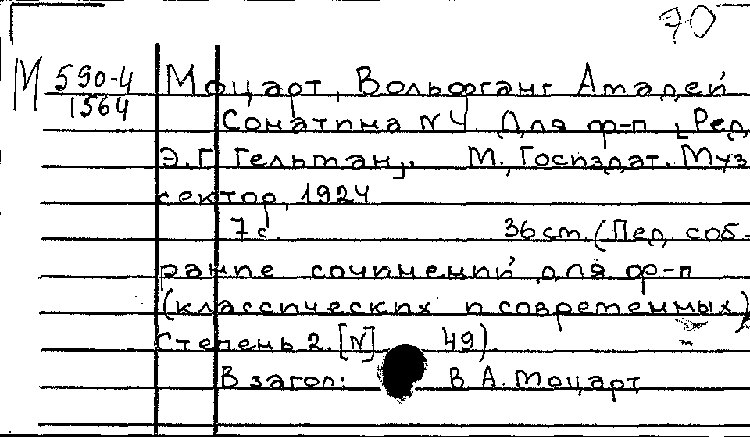 70
М 590-4 Моцарт, Вольфганг Амадей
1564
Сонатина N 4 Для ф-п. [Ред.
Э. Г. Гельман]. М., Госиздат. Муз
сектор, 1924
7 с. 36 cm. (Пед. соб-
рание сочинений для ф-п
(классических и современных)
Степень 2. [N] 49).
В загол: В. А. Моцарт